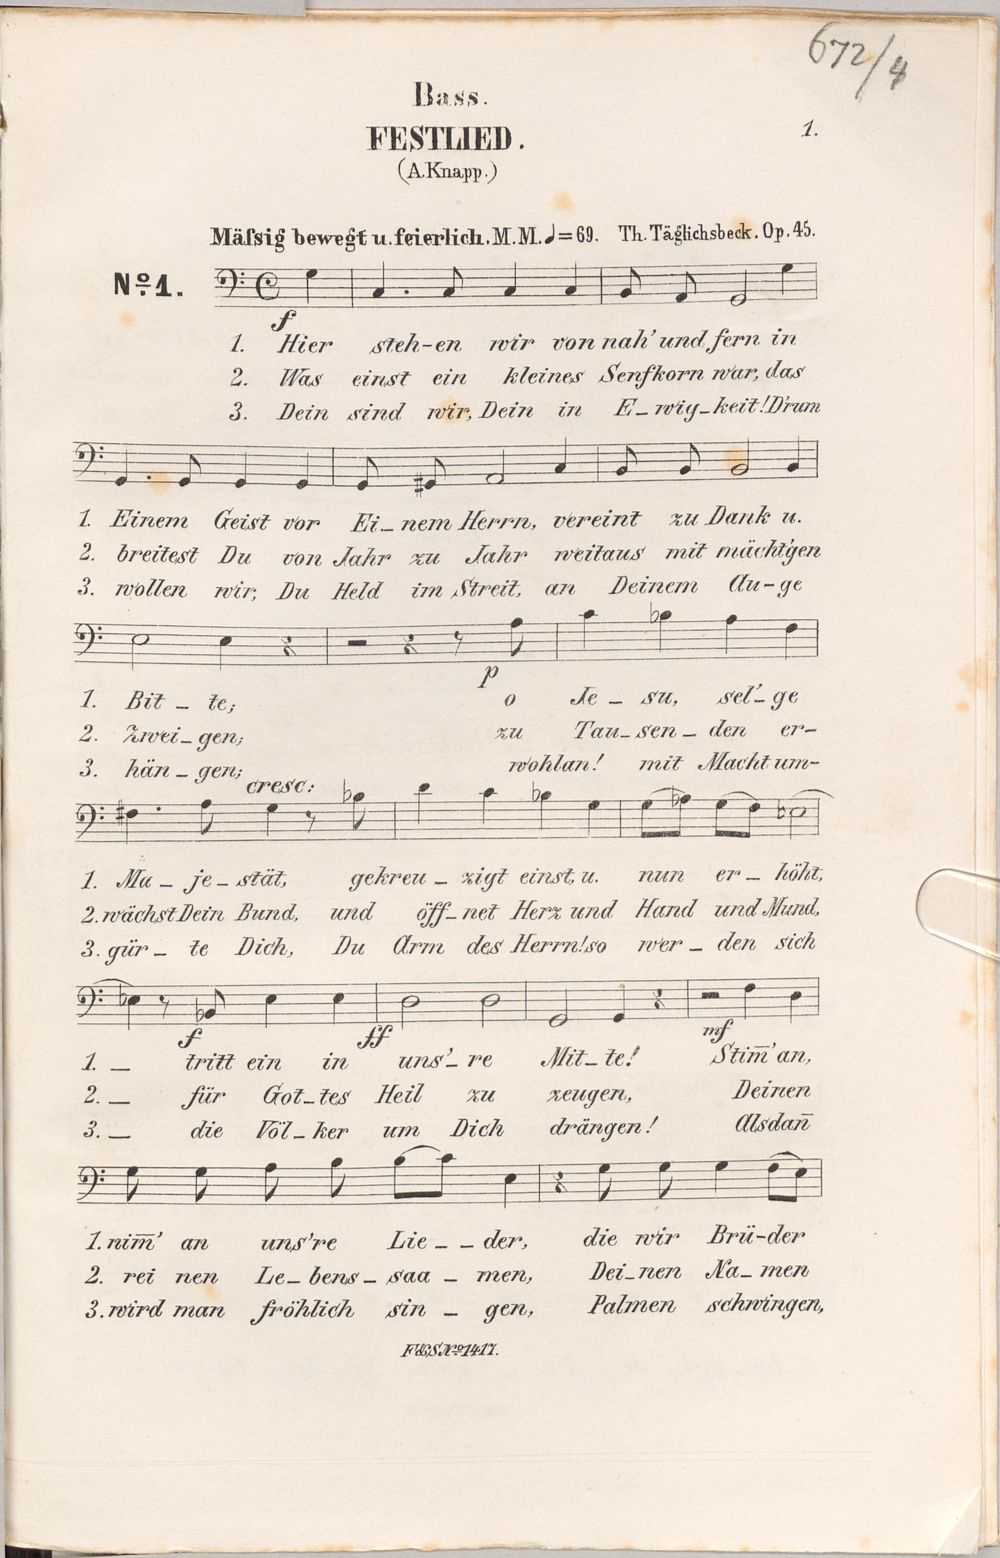 672/4
Bass.
FESTLIED.
1.
(A.Knapp.)
Mäſsig bewegt u. feierlich. M.M. ♩=69. Th. Täglichsbeck. Op. 45.
Nº 1.
f
1. Hier steh-en wir von nah' und fern in
2. Was einst ein kleines Senfkorn war, das
3. Dein sind wir, Dein in E-wig-keit! D'rum
1. Einem Geist vor Ei-nem Herrn, vereint zu Dank u.
2. breitest Du von Jahr zu Jahr weitaus mit mächt'gen
3. wollen wir, Du Held im Streit, an Deinem Au-ge
p
1. Bit-te; o Je-su, sel'-ge
2. Zwei-gen; zu Tau-sen-den er-
3. hän-gen; wohlan! mit Macht um-
cresc:
1. Ma-je-stät, gekreu-zigt einst, u. nun er-höht,
2. wächst Dein Bund, und öff-net Herz und Hand und Mund,
3. gür-te Dich, Du Arm des Herrn! so wer-den sich
f ff mf
1. _ tritt ein in uns'-re Mit-te! Stim̅' an,
2. _ für Got-tes Heil zu zeugen, Deinen
3. _ die Völ-ker um Dich drängen! Alsdan̅
1. nim̅' an uns're Lie--der, die wir Brü-der
2. rei nen Le-bens-saa-men, Dei-nen Na-men
3. wird man fröhlich sin-gen, Palmen schwingen,
F&S Nº 1417.